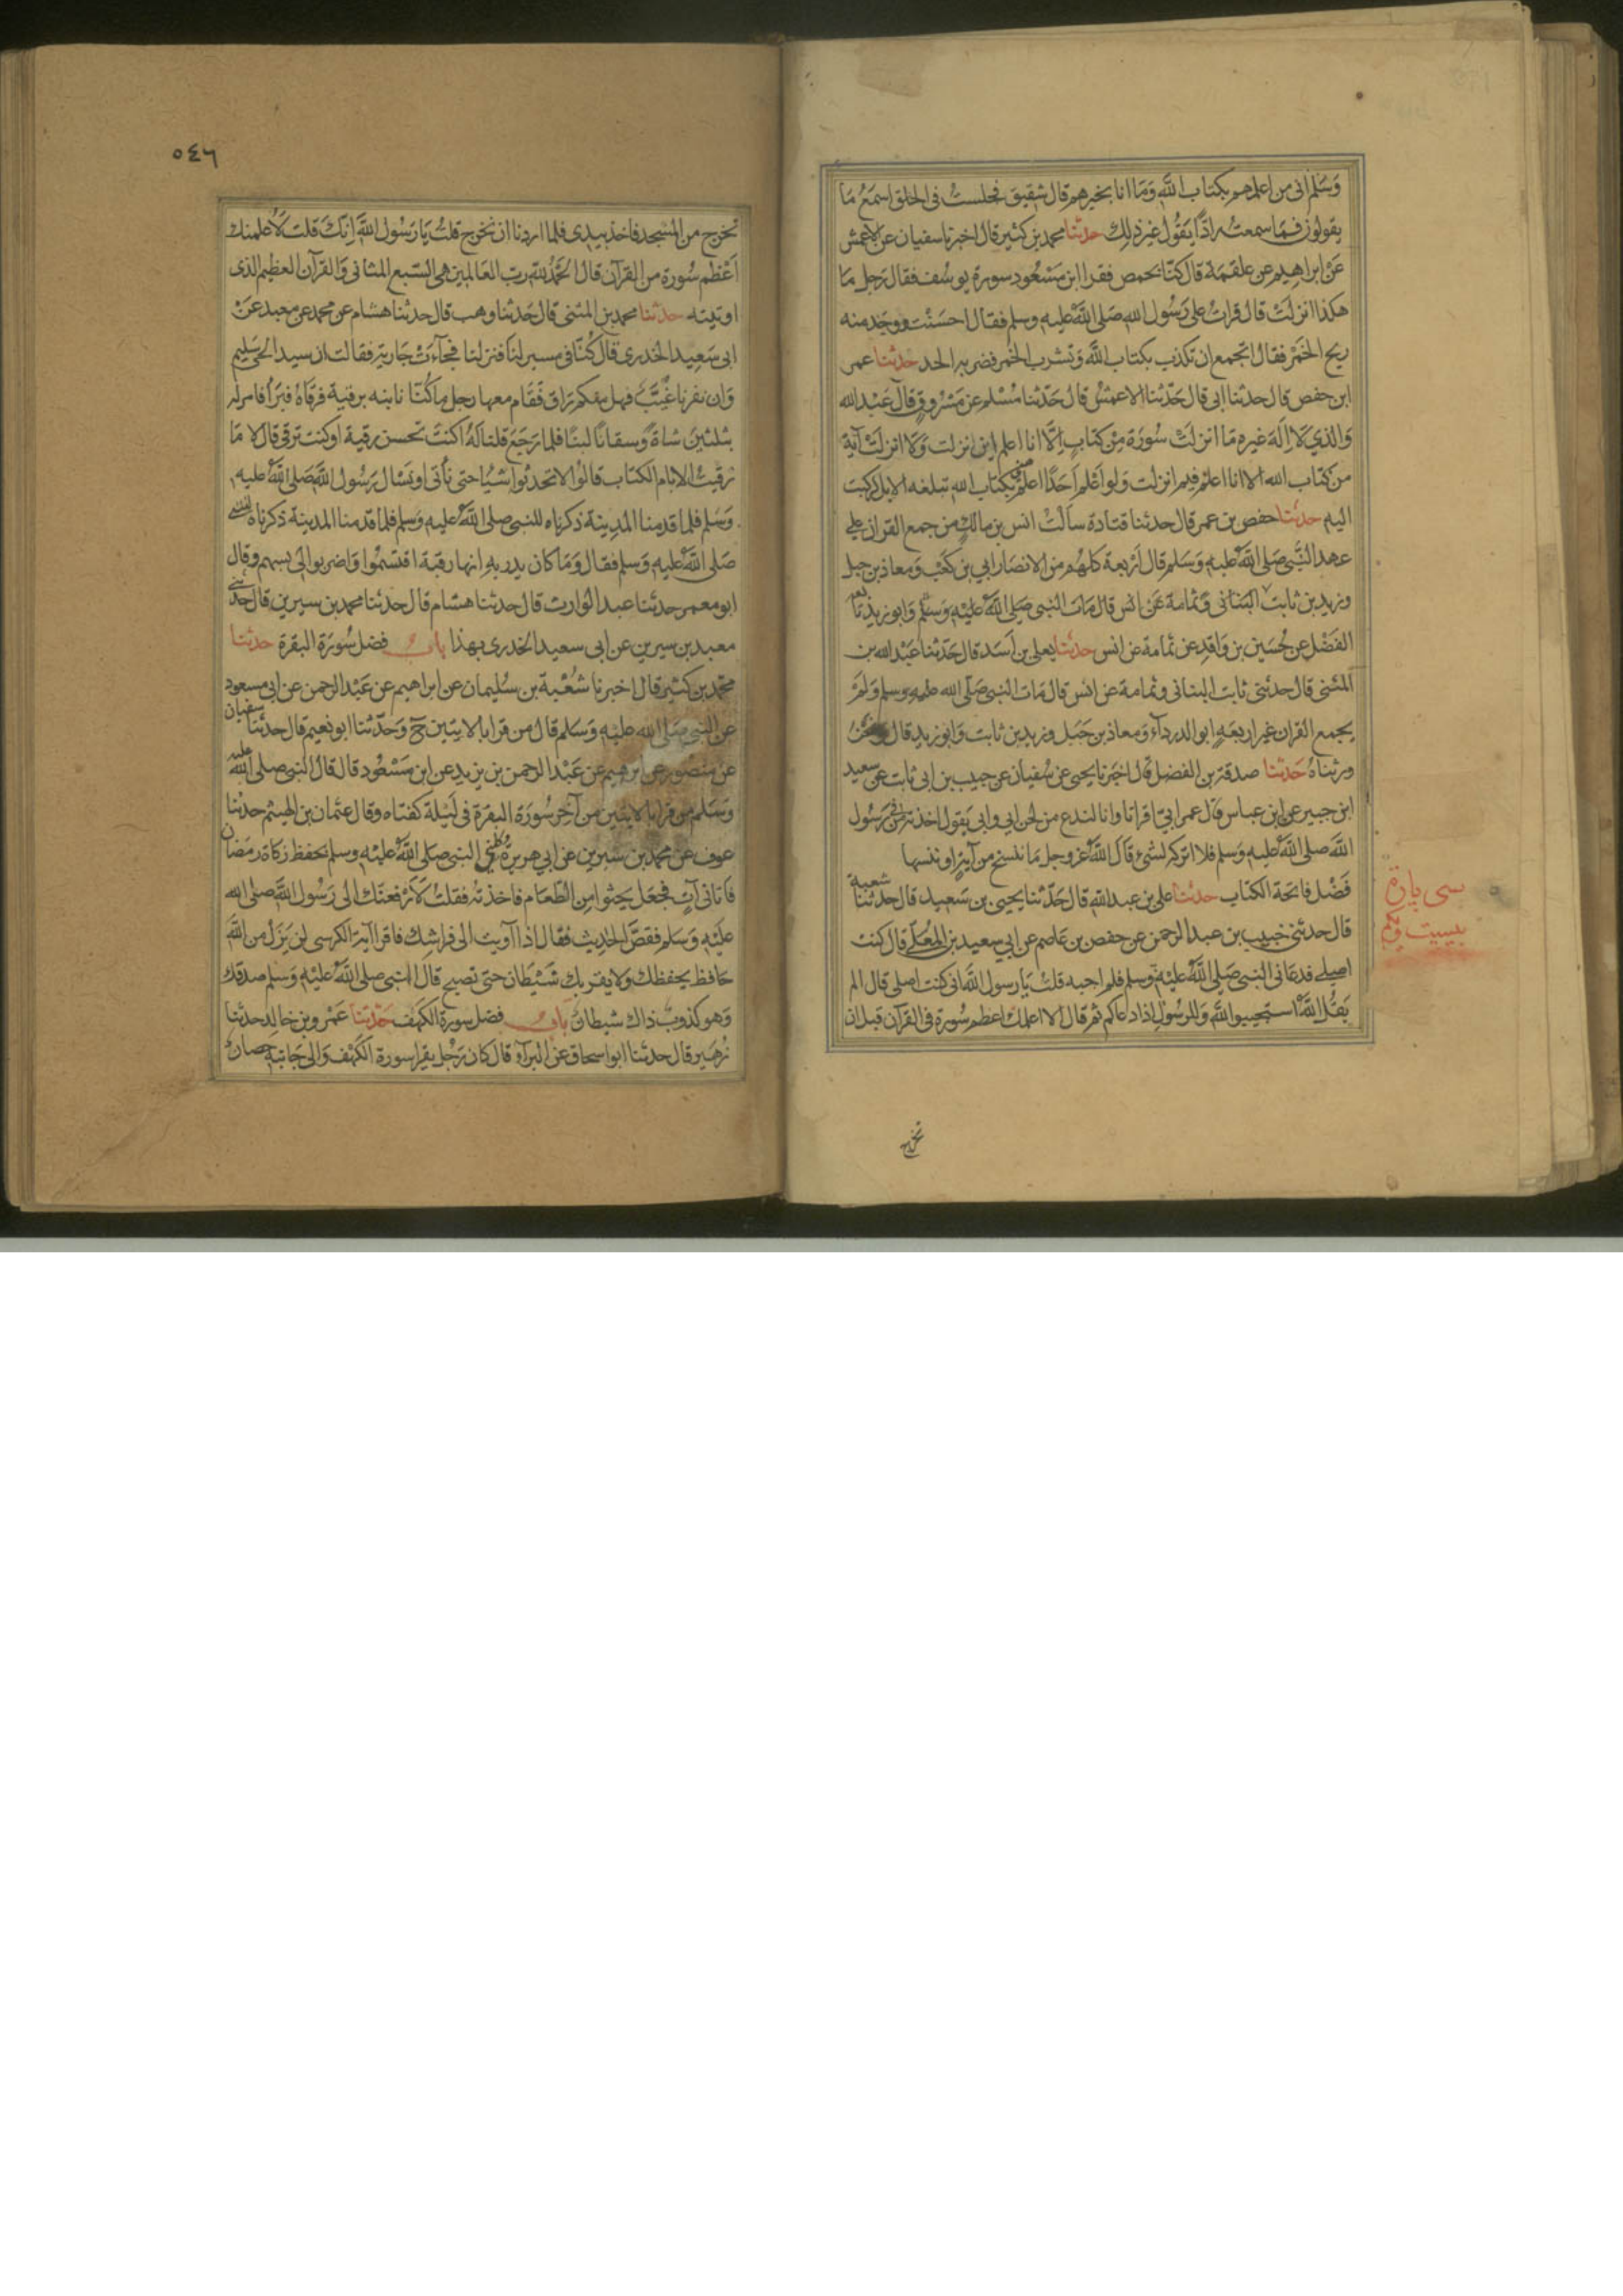 وسلم اني من اعلمهم بكتاب الله وما انا بخيرهم قال شقيق فجلست في الحلق اسمع ما
يقولون فما سمعت رادا يقول غير ذلك حدثنا محمد بن كثير قال اخبرنا سفيان عن الاعمش
عن ابراهيم عن علقمة قال كنا بحمص فقرا ابن مسعود سورة يوسف فقال رجل ما
هكذا انزلت قال قرات على رسول الله صلى الله عليه وسلم فقال احسنت ووجد منه
ريح الخمر فقال اتجمع ان تكذب بكتاب الله وتشرب الخمر فضربه الحد حدثنا عمر
ابن حفص قال حدثنا ابي قال حدثنا الاعمش قال حدثنا مسلم عن مسروق قال عبد الله
والذي لا اله غيره ما انزلت سورة من كتاب الا انا اعلم اين انزلت ولا انزلت آية
من كتاب الله الا انا اعلم فيم انزلت ولو اعلم احدا اعلم مني بكتاب الله تبلغه الابل لركبت
اليه حدثنا حفص بن عمر قال حدثنا قتادة سالت انس بن مالك من جمع القران على
عهد النبي صلى الله عليه وسلم قال اربعة كلهم من الانصار ابي بن كعب ومعاذ بن جبل
وزيد بن ثابت البناني وثمامة عن انس قال مات النبي صلى الله عليه وسلم وابو زيد تابعه
الفضل عن حسين بن واقد عن ثمامة عن انس حدثنا يعلى بن اسد قال حدثنا عبد الله بن
المثنى قال حدثني ثابت البناني وثمامة عن انس قال مات النبي صلى الله عليه وسلم ولم
يجمع القران غير اربعة ابو الدرداء ومعاذ بن جبل وزيد بن ثابت وابو زيد قال ونحن
ورثناه حدثنا صدقة بن الفضل قال اخبرنا يحيى عن سفيان عن حبيب بن ابي ثابت عن سعيد
ابن جبير عن ابن عباس قال عمر ابي اقرانا وانا لندع من لحن ابي وابي يقول اخذته من في رسول
الله صلى الله عليه وسلم فلا اتركه لشئ قال الله عز وجل ما ننسخ من آية او ننسها
فضل فاتحة الكتاب حدثنا علي بن عبد الله قال حدثنا يحيى بن سعيد قال حدثنا شعبة
قال حدثني خبيب بن عبد الرحمن عن حفص بن عاصم عن ابي سعيد بن المعلى قال كنت
اصلي فدعاني النبي صلى الله عليه وسلم فلم اجبه قلت يا رسول الله اني كنت اصلي قال الم
يقل الله استجيبوا لله وللرسول اذا دعاكم ثم قال الا اعلمك اعظم سورة في القرآن قبل ان
سي پارة
بيست ويكم
تخرج
٥٤٦
تخرج من المسجد فاخذ بيدي فلما اردنا ان نخرج قلت يا رسول الله انك قلت لاعلمنك
اعظم سورة من القرآن قال الحمد لله رب العالمين هي السبع المثاني والقرآن العظيم الذي
اوتيته حدثنا محمد بن المثنى قال حدثنا وهب قال حدثنا هشام عن محمد عن معبد عن
ابي سعيد الخدري قال كنا في مسير لنا فنزلنا فجاءت جارية فقالت ان سيد الحي سليم
وان نفرنا غيب فهل منكم راق فقام معها رجل ما كنا نابنه برقية فرقاه فبرا فامر له
بثلثين شاة وسقانا لبنا فلما رجع قلنا له اكنت تحسن رقية او كنت ترقي قال لا ما
رقيت الا بام الكتاب قالوا لا تحدثوا شيا حتى ناتي او نسال رسول الله صلى الله عليه
وسلم فلما قدمنا المدينة ذكرناه للنبي صلى الله عليه وسلم فلما قدمنا المدينة ذكرناه للنبي
صلى الله عليه وسلم فقال وما كان يدريه انها رقية اقتسموا واضربوا لي بسهم وقال
ابو معمر حدثنا عبد الوارث قال حدثنا هشام قال حدثنا محمد بن سيرين قال حدثني
معبد بن سيرين عن ابي سعيد الخدري بهذا باب فضل سورة البقرة حدثنا
محمد بن كثير قال اخبرنا شعبة بن سليمان عن ابراهيم عن عبد الرحمن عن ابي مسعود
عن النبي صلى الله عليه وسلم قال من قرا بالايتين ح وحدثنا ابو نعيم قال حدثنا سفيان
عن منصور عن ابرهيم عن عبد الرحمن بن يزيد عن ابن مسعود قال قال النبي صلى الله عليه
وسلم من قرا بالايتين من آخر سورة البقرة في ليلة كفتاه وقال عثمان بن الهيثم حدثنا
عوف عن محمد بن سيرين عن ابي هريرة وكلني النبي صلى الله عليه وسلم بحفظ زكاة رمضان
فاتاني آت فجعل يحثوا من الطعام فاخذته فقلت لارفعنك الى رسول الله صلى الله
عليه وسلم فقص الحديث فقال اذا آويت الى فراشك فاقرا آية الكرسي لن يزل من الله
حافظ يحفظك ولا يقربك شيطان حتى تصبح قال النبي صلى الله عليه وسلم صدقك
وهو كذوب ذاك شيطان باب فضل سورة الكهف حدثنا عمرو بن خالد حدثنا
زهير قال حدثنا ابو اسحاق عن البراء قال كان رجل يقرا سورة الكهف والى جانبه حصان